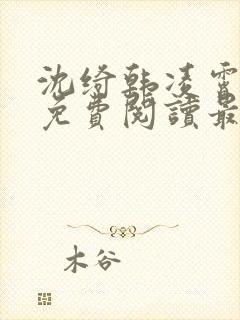 沈绮韩凌霄
免費閱讀最
木谷